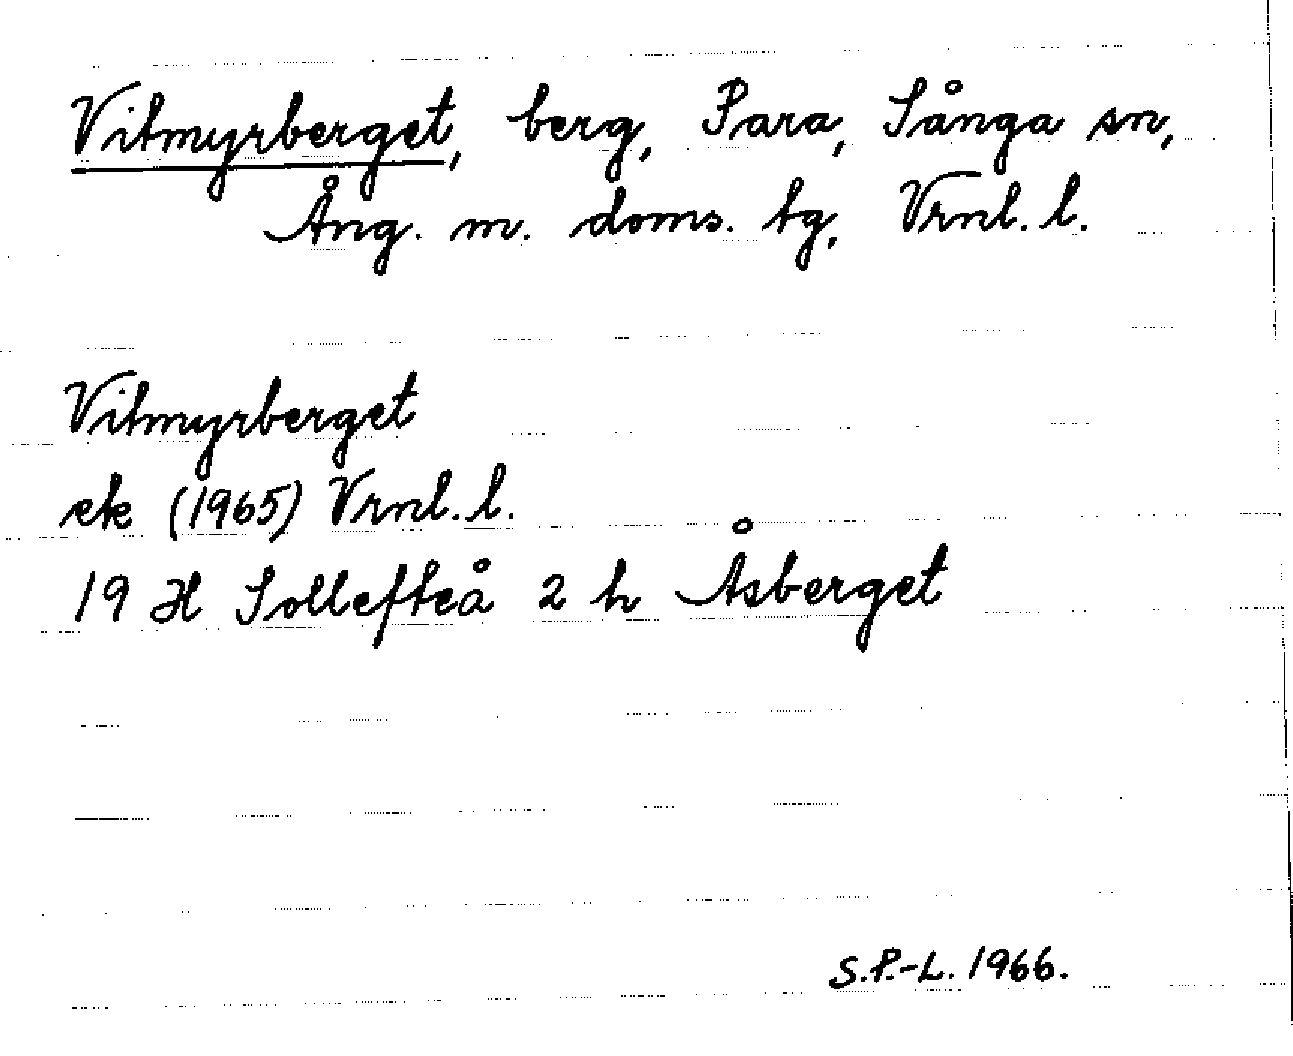 Vitmyrberget, berg, Para, Sånga sn,
Ång. m. doms. tg, Vrnl. l.
Vitmyrberget
ek (1965) Vrnl. l.
19 H Sollefteå 2 h Åsberget
S.P.-L. 1966.